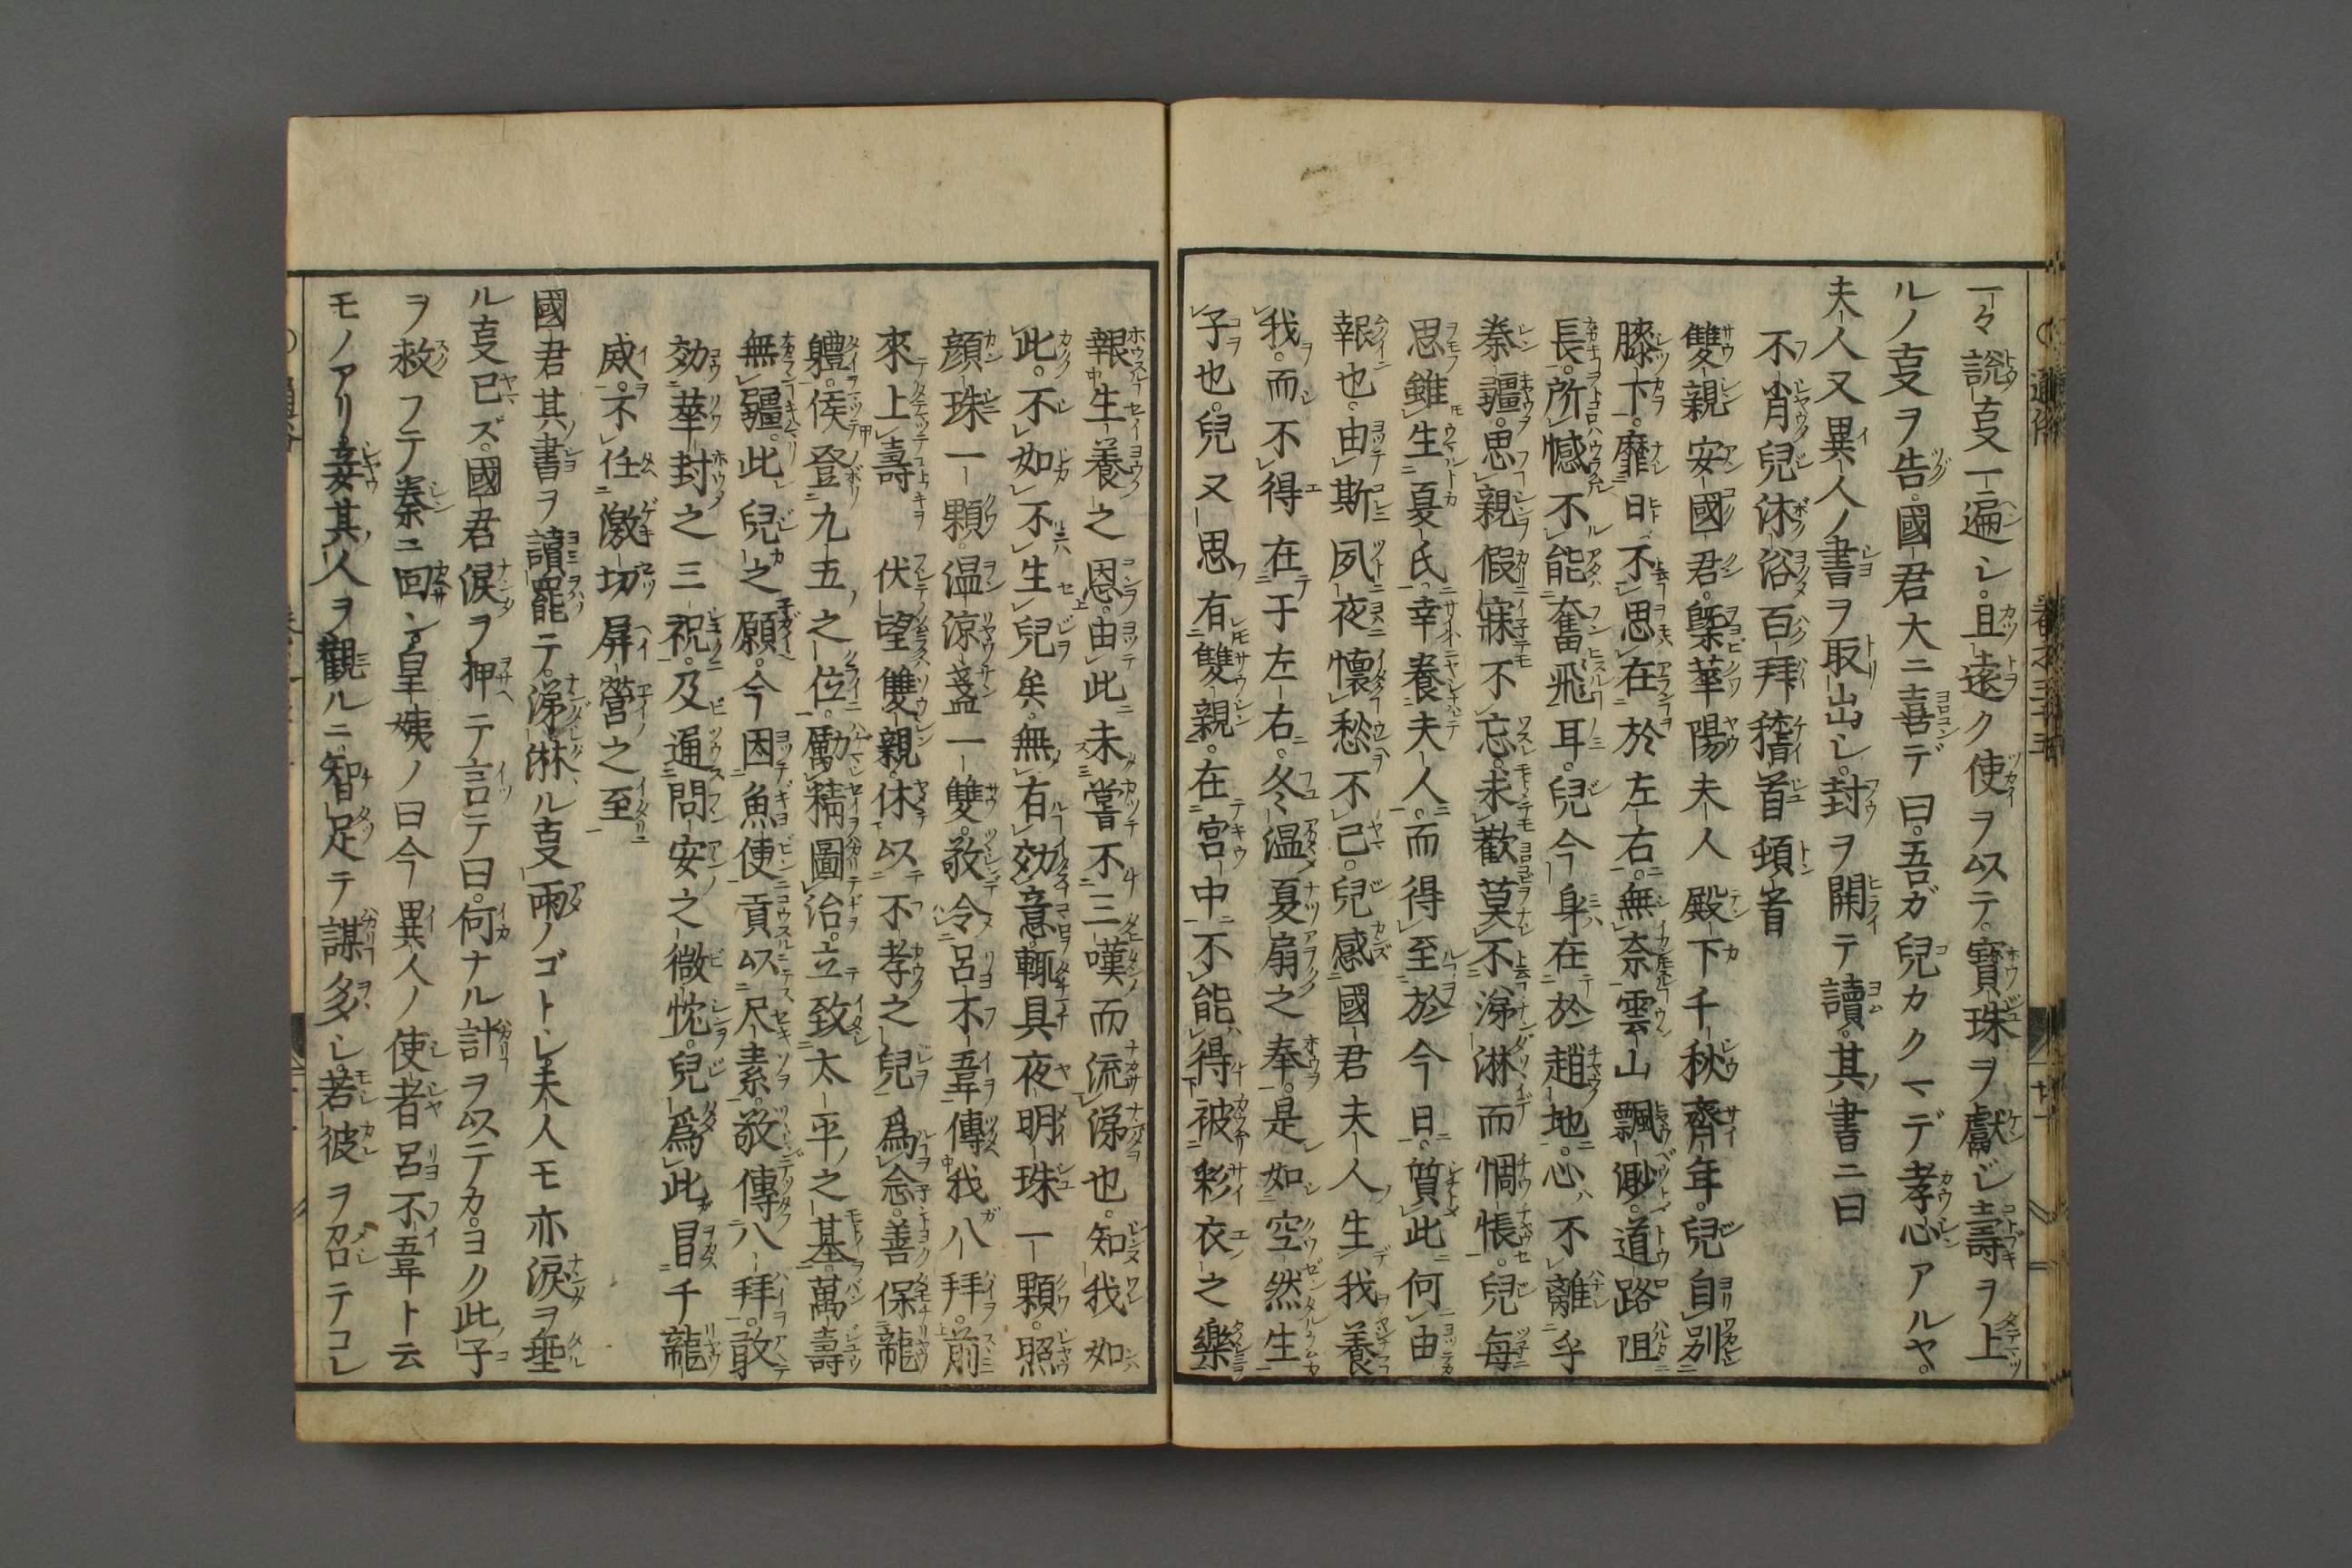 一々説㕝一遍シ。且遠ク使ヲ以テ。寳珠ヲ獻ジ壽ヲ上
ルノ㕝ヲ告。國君大ニ喜デ曰。吾ガ兒カクマデ孝心アルヤ。
夫人又異人ノ書ヲ取出シ。封ヲ開テ讀。其書ニ曰
不肖兒沐浴百拜稽首頓首
雙親安國君。曁華陽夫人殿下千秋齊年。兒自別
膝下。靡日不思在於左右。無奈雲山飄渺。道路阻
長。所憾不能奮飛耳。兒今身在於趙地。心不離乎
秦疆。思親假寐不忘。求歡莫不涕淋而惆悵。兒每
思雖生夏氏。幸養夫人。而得至於今日。質此何由
報也。由斯夙夜懷愁不已。兒感國君夫人生我養
我。而不得在于左右。冬溫夏扇之奉。是如空然生
子也。兒又思有雙親。在宮中不能得被彩衣之樂
報生養之恩。由此未嘗不三嘆而流涕也。知我如
此。不如不生兒矣。無有効意。輙具夜明珠一顆。照
顏珠一顆。温凉盞一雙。敬令呂不韋傳我八拜。前
來上壽　伏望雙親。休以不孝之兒爲念。善保龍
體。俟登九五之位。勵精圖治。立致太平之基。萬壽
無疆。此兒之願。今因魚使貢以尺素。敬傳八拜。敢
効華封之三祝。及通問安之微忱。兒爲此冒千龍
威。不任激切屏營之至
國君其書ヲ讀罷テ。涕淋ル㕝雨ノゴトシ夫人モ亦涙ヲ垂
ル㕝已ズ。國君涙ヲ押テ言テ曰。何ナル計ヲ以テカ。ヨク此子
ヲ救フテ秦ニ回ン。皇姨ノ曰今異人ノ使者呂不韋ト云
モノアリ妾其人ヲ觀ルニ。智足テ謀多シ。若彼ヲ召テコレ